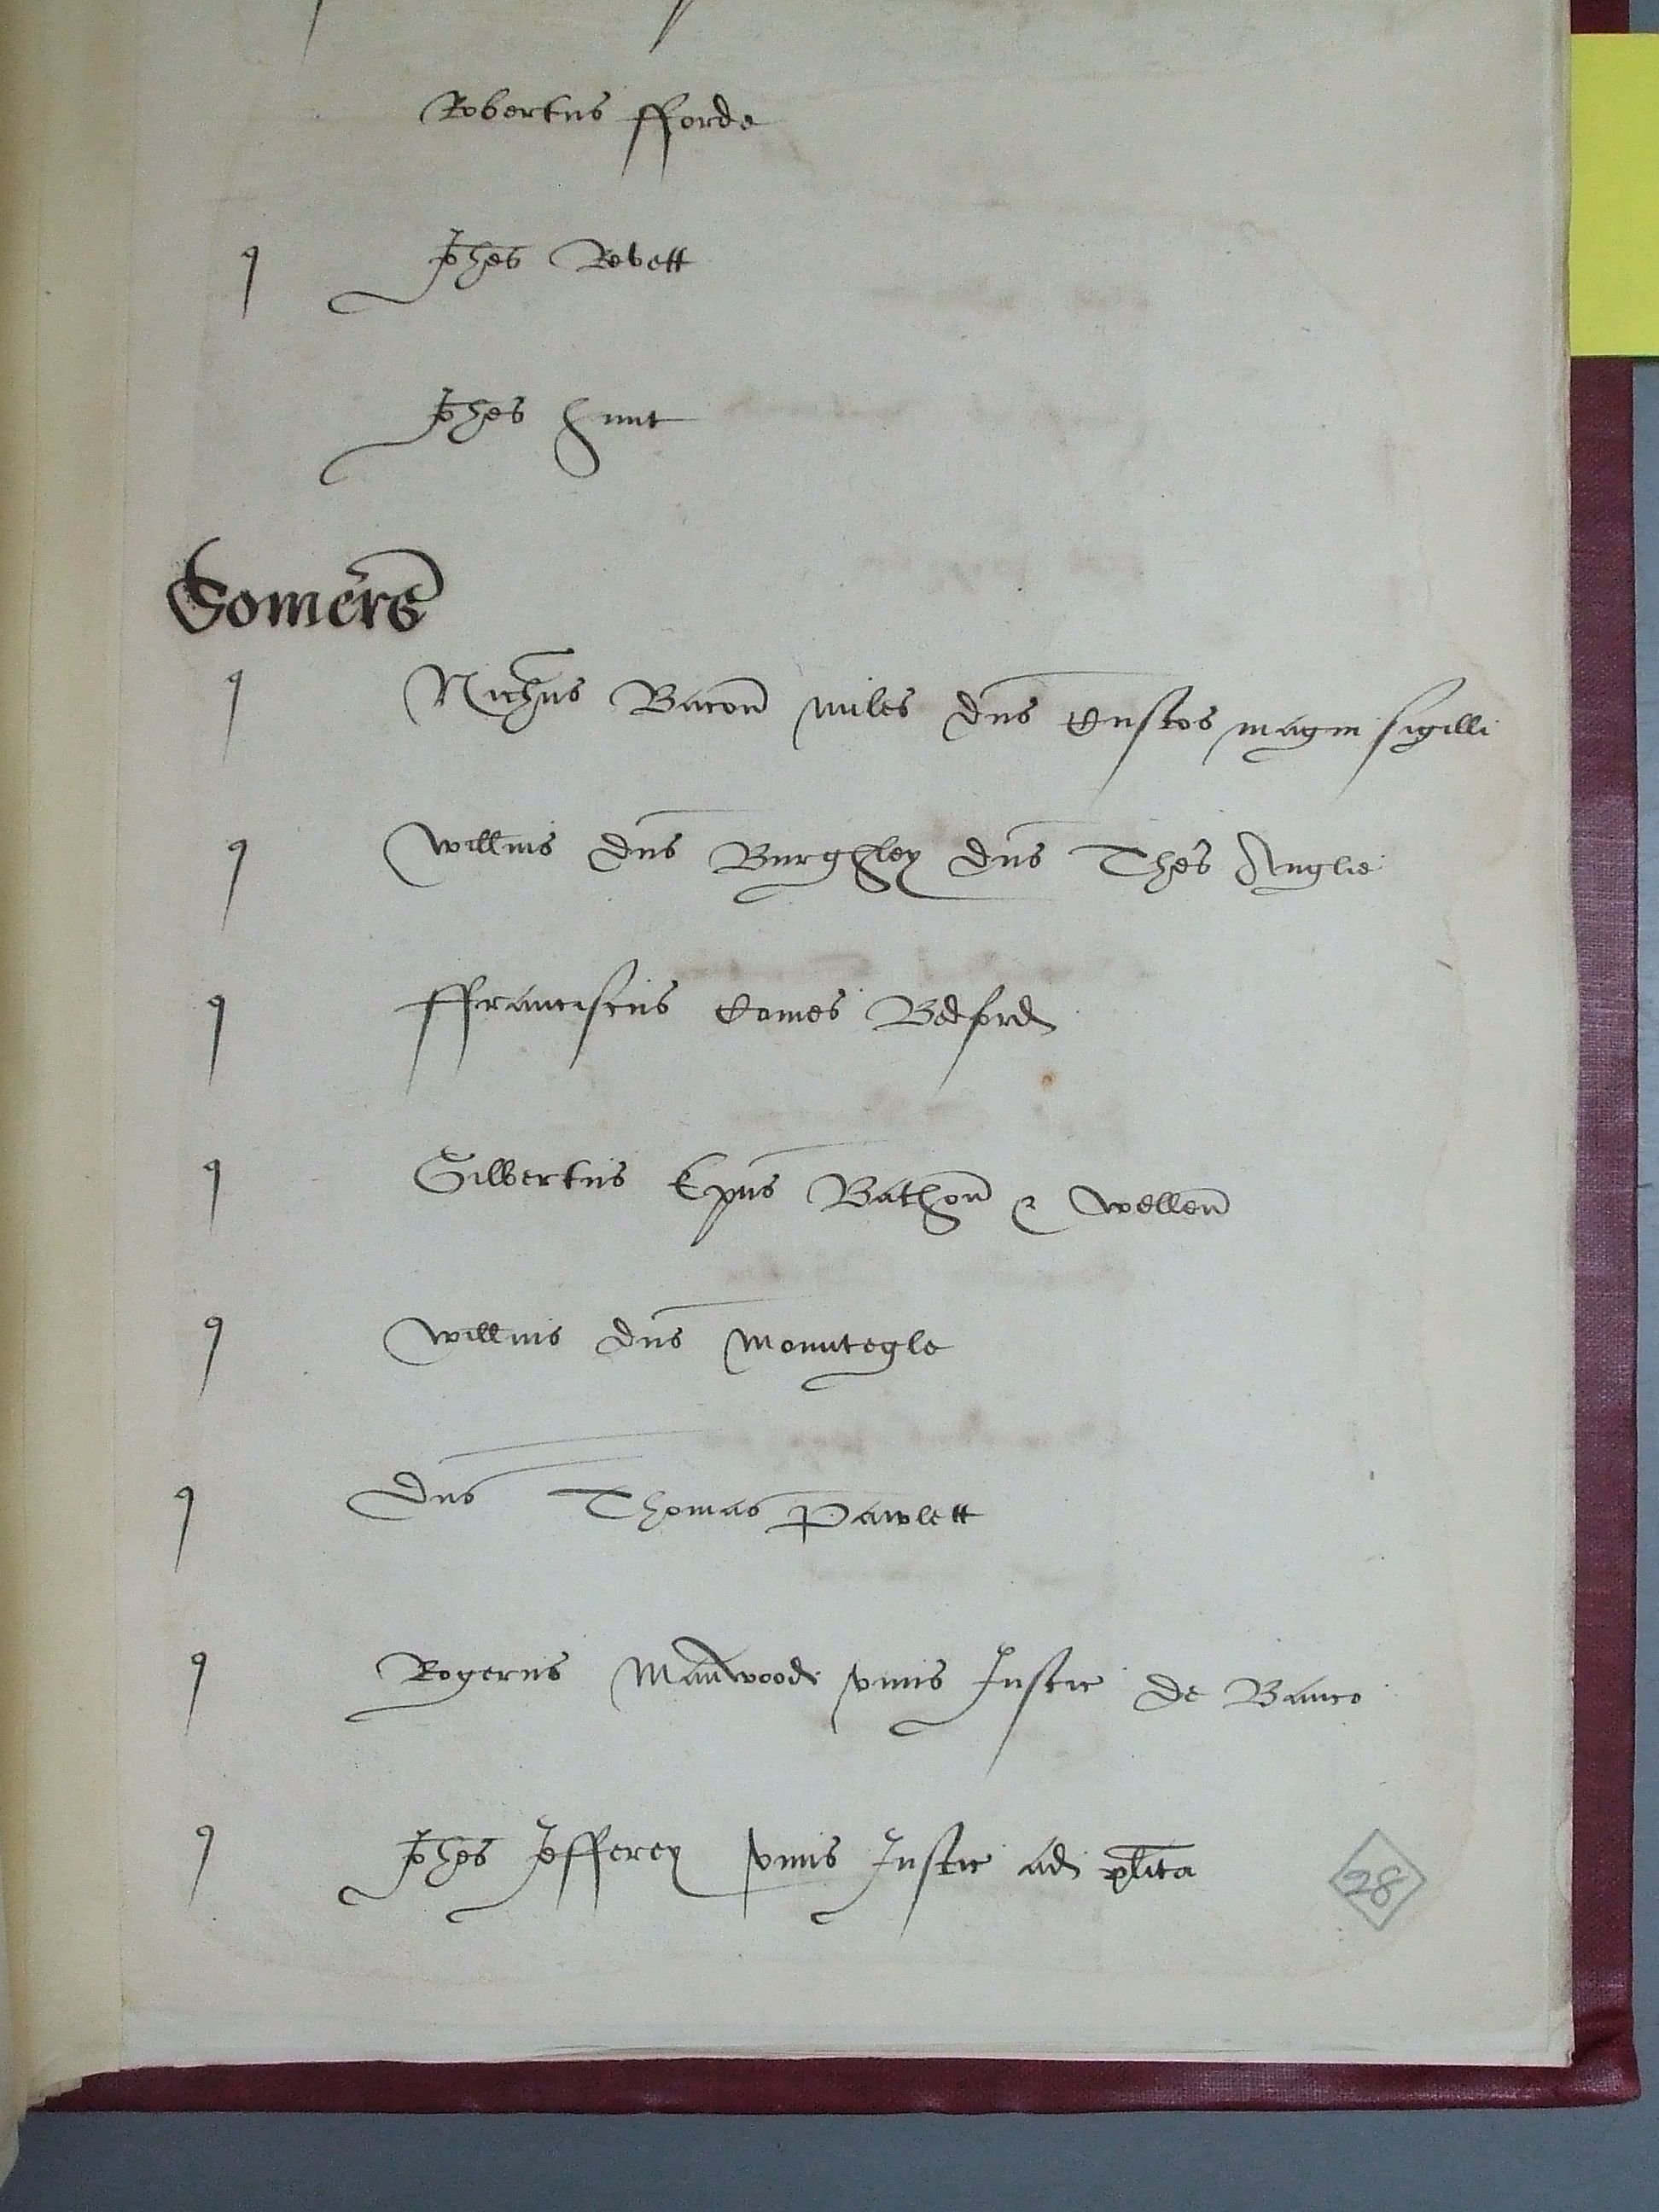 Robertus fforde
q Johes Revett
Johes Hunt
Somers
q Nichus Bacon miles dns Custos magni sigilli
q Willms dns Burghley dns Thes Anglie
q ffranciscus Comes Bedford
q Gilbertus Epus Bathon & Wellen
q Willms dns Mountegle
q Dns Thomas Pawlett
q Rogerus Manwoode vnus Justic de Banco
q Johes Jefferey vnus Justic ad plita
28